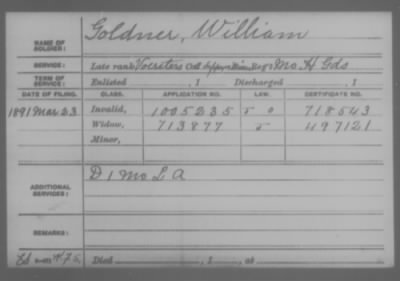 NAME OF SOLDIER: Goldner, William
SERVICE: Late rank, Voerster's Co. Sapp. & Min. Reg't Mo. H. Gds
TERM OF SERVICE: Enlisted , 1 Discharged , 1
DATE OF FILING. CLASS. APPLICATION NO. LAW. CERTIFICATE NO.
1891 Mar 23 Invalid, 1005235 718543
Widow, 713877 497121
Minor,
ADDITIONAL SERVICES: D 1 Mo L A
REMARKS:
Died , 1 , at